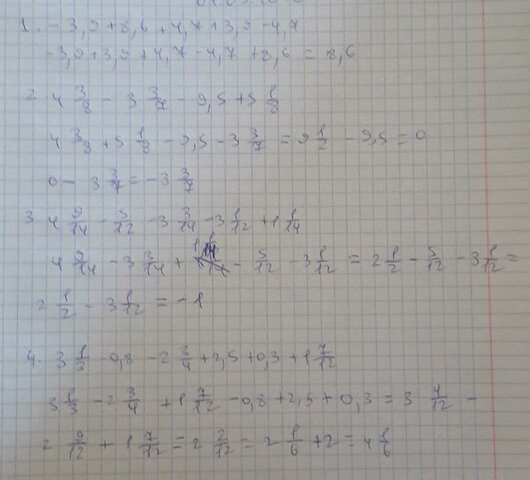 1. -3,9+8,6+4,7+3,9-4,7
-3,9+3,9+4,7-4,7+8,6=8,6
2 4 3/8 - 3 3/7 - 9,5+5 1/8
4 3/8 +5 1/8 -9,5-3 3/7 = 9 1/2 -9,5=0
0- 3 3/7 = -3 3/7
3 4 9/14 - 5/12 -3 3/14 -3 1/12 +1 1/14
4 9/14 -3 3/14 + 1 1/14 - 5/12 - 3 1/12 = 2 1/2 - 5/12 -3 1/12 =
2 1/2 -3 1/12 = -1
4. 3 1/3 -0,8-2 3/4 +2,5+0,3+1 7/12
3 1/3 -2 3/4 +1 7/12 -0,8+2,5+0,3=3 4/12 -
2 9/12 + 1 7/12 = 2 2/12 = 2 1/6 +2=4 1/6